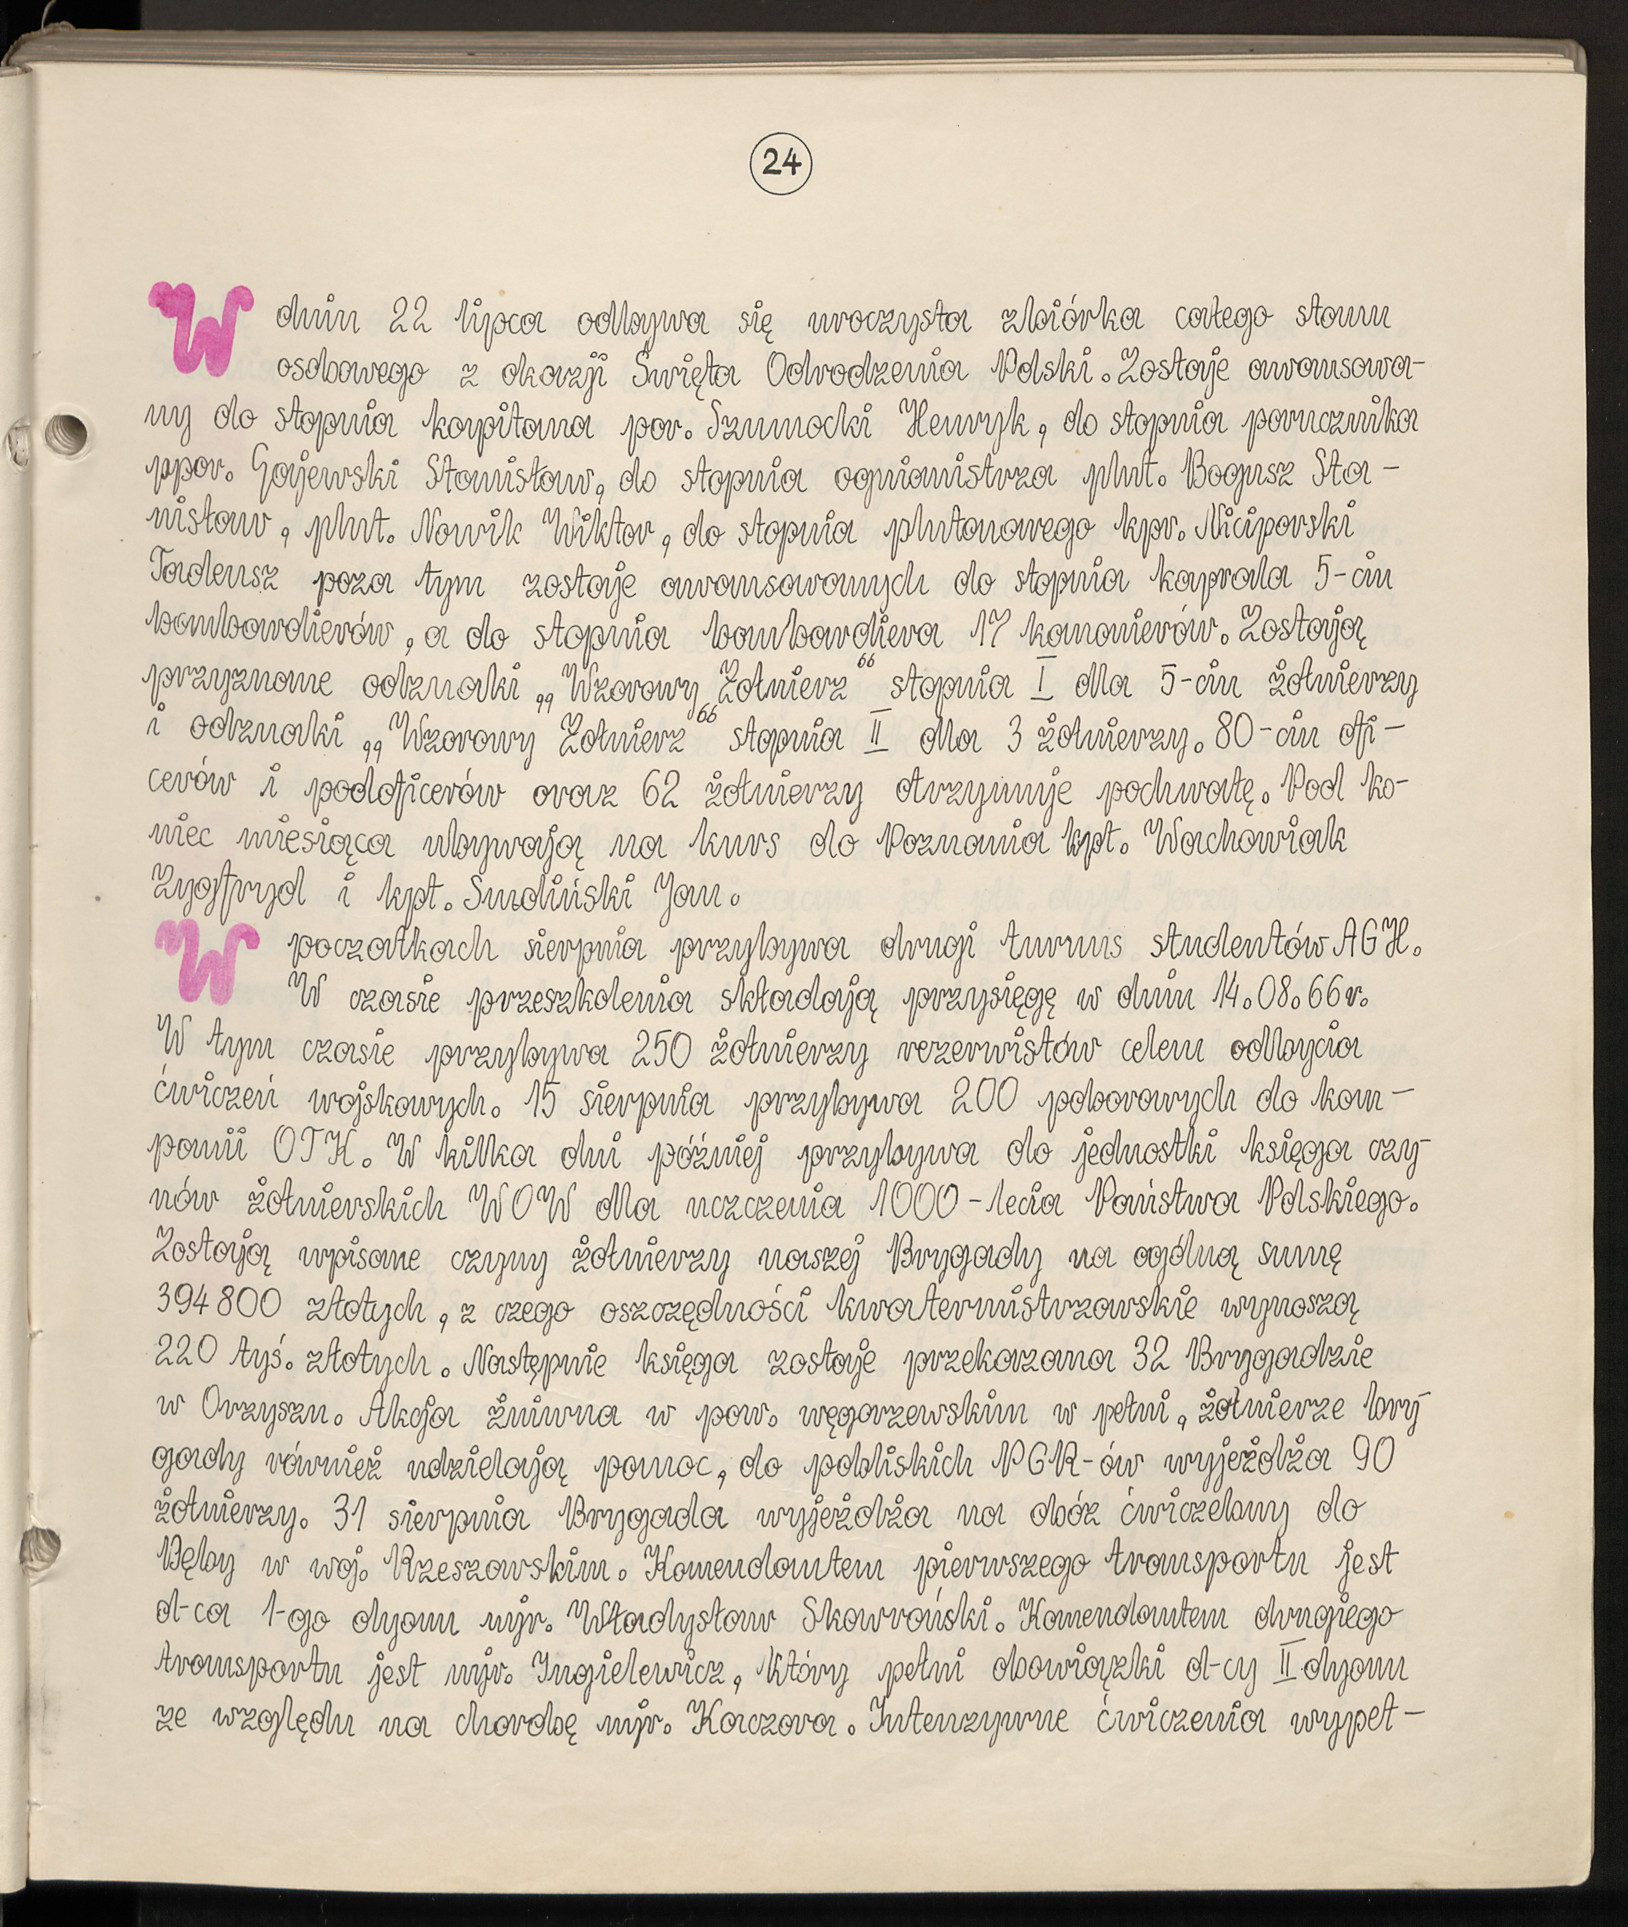 24
W dniu 22 lipca odbywa się uroczysta zbiórka całego stanu
osobowego z okazji Święta Odrodzenia Polski. Zostaje awansowa-
ny do stopnia kapitana por. Szumocki Henryk, do stopnia porucznika
ppor. Gajewski Stanisław, do stopnia ogniomistrza plut. Bogusz Sta-
nisław, plut. Nowik Wiktor, do stopnia plutonowego kpr. Niciporski
Tadeusz poza tym zostaje awansowanych do stopnia kaprala 5-ciu
bombardierów, a do stopnia bombardiera 17 kanonierów. Zostają
przyznane odznaki „Wzorowy Żołnierz“ stopnia I dla 5-ciu żołnierzy
i odznaki „Wzorowy Żołnierz“ stopnia II dla 3 żołnierzy. 80-ciu ofi-
cerów i podoficerów oraz 62 żołnierzy otrzymuje pochwałę. Pod ko-
niec miesiąca ubywają na kurs do Poznania kpt. Wachowiak
Zygfryd i kpt. Smoliński Jan.
W początkach sierpnia przybywa drugi turnus studentów AGH.
W czasie przeszkolenia składają przysięgę w dniu 14.08.66r.
W tym czasie przybywa 250 żołnierzy rezerwistów celem odbycia
ćwiczeń wojskowych. 15 sierpnia przybywa 200 poborowych do kom-
panii OTK. W kilka dni później przybywa do jednostki księga czy-
nów żołnierskich WOW dla uczczenia 1000-lecia Państwa Polskiego.
Zostają wpisane czyny żołnierzy naszej Brygady na ogólną sumę
394800 złotych, z czego oszczędności kwatermistrzowskie wynoszą
220 tyś. złotych. Następnie księga zostaje przekazana 32 Brygadzie
w Orzyszu. Akcja żniwna w pow. węgorzewskim w pełni, żołnierze bry-
gady również udzielają pomoc, do pobliskich PGR-ów wyjeżdża 90
żołnierzy. 31 sierpnia Brygada wyjeżdża na obóz ćwiczebny do
Dęby w woj. Rzeszowskim. Komendantem pierwszego transportu jest
d-ca 1-go dyonu mjr. Władysław Skowroński. Komendantem drugiego
transportu jest mjr. Ingielewicz, który pełni obowiązki d-cy II dyonu
ze względu na chorobę mjr. Kaczora. Intenzywne ćwiczenia wypeł-